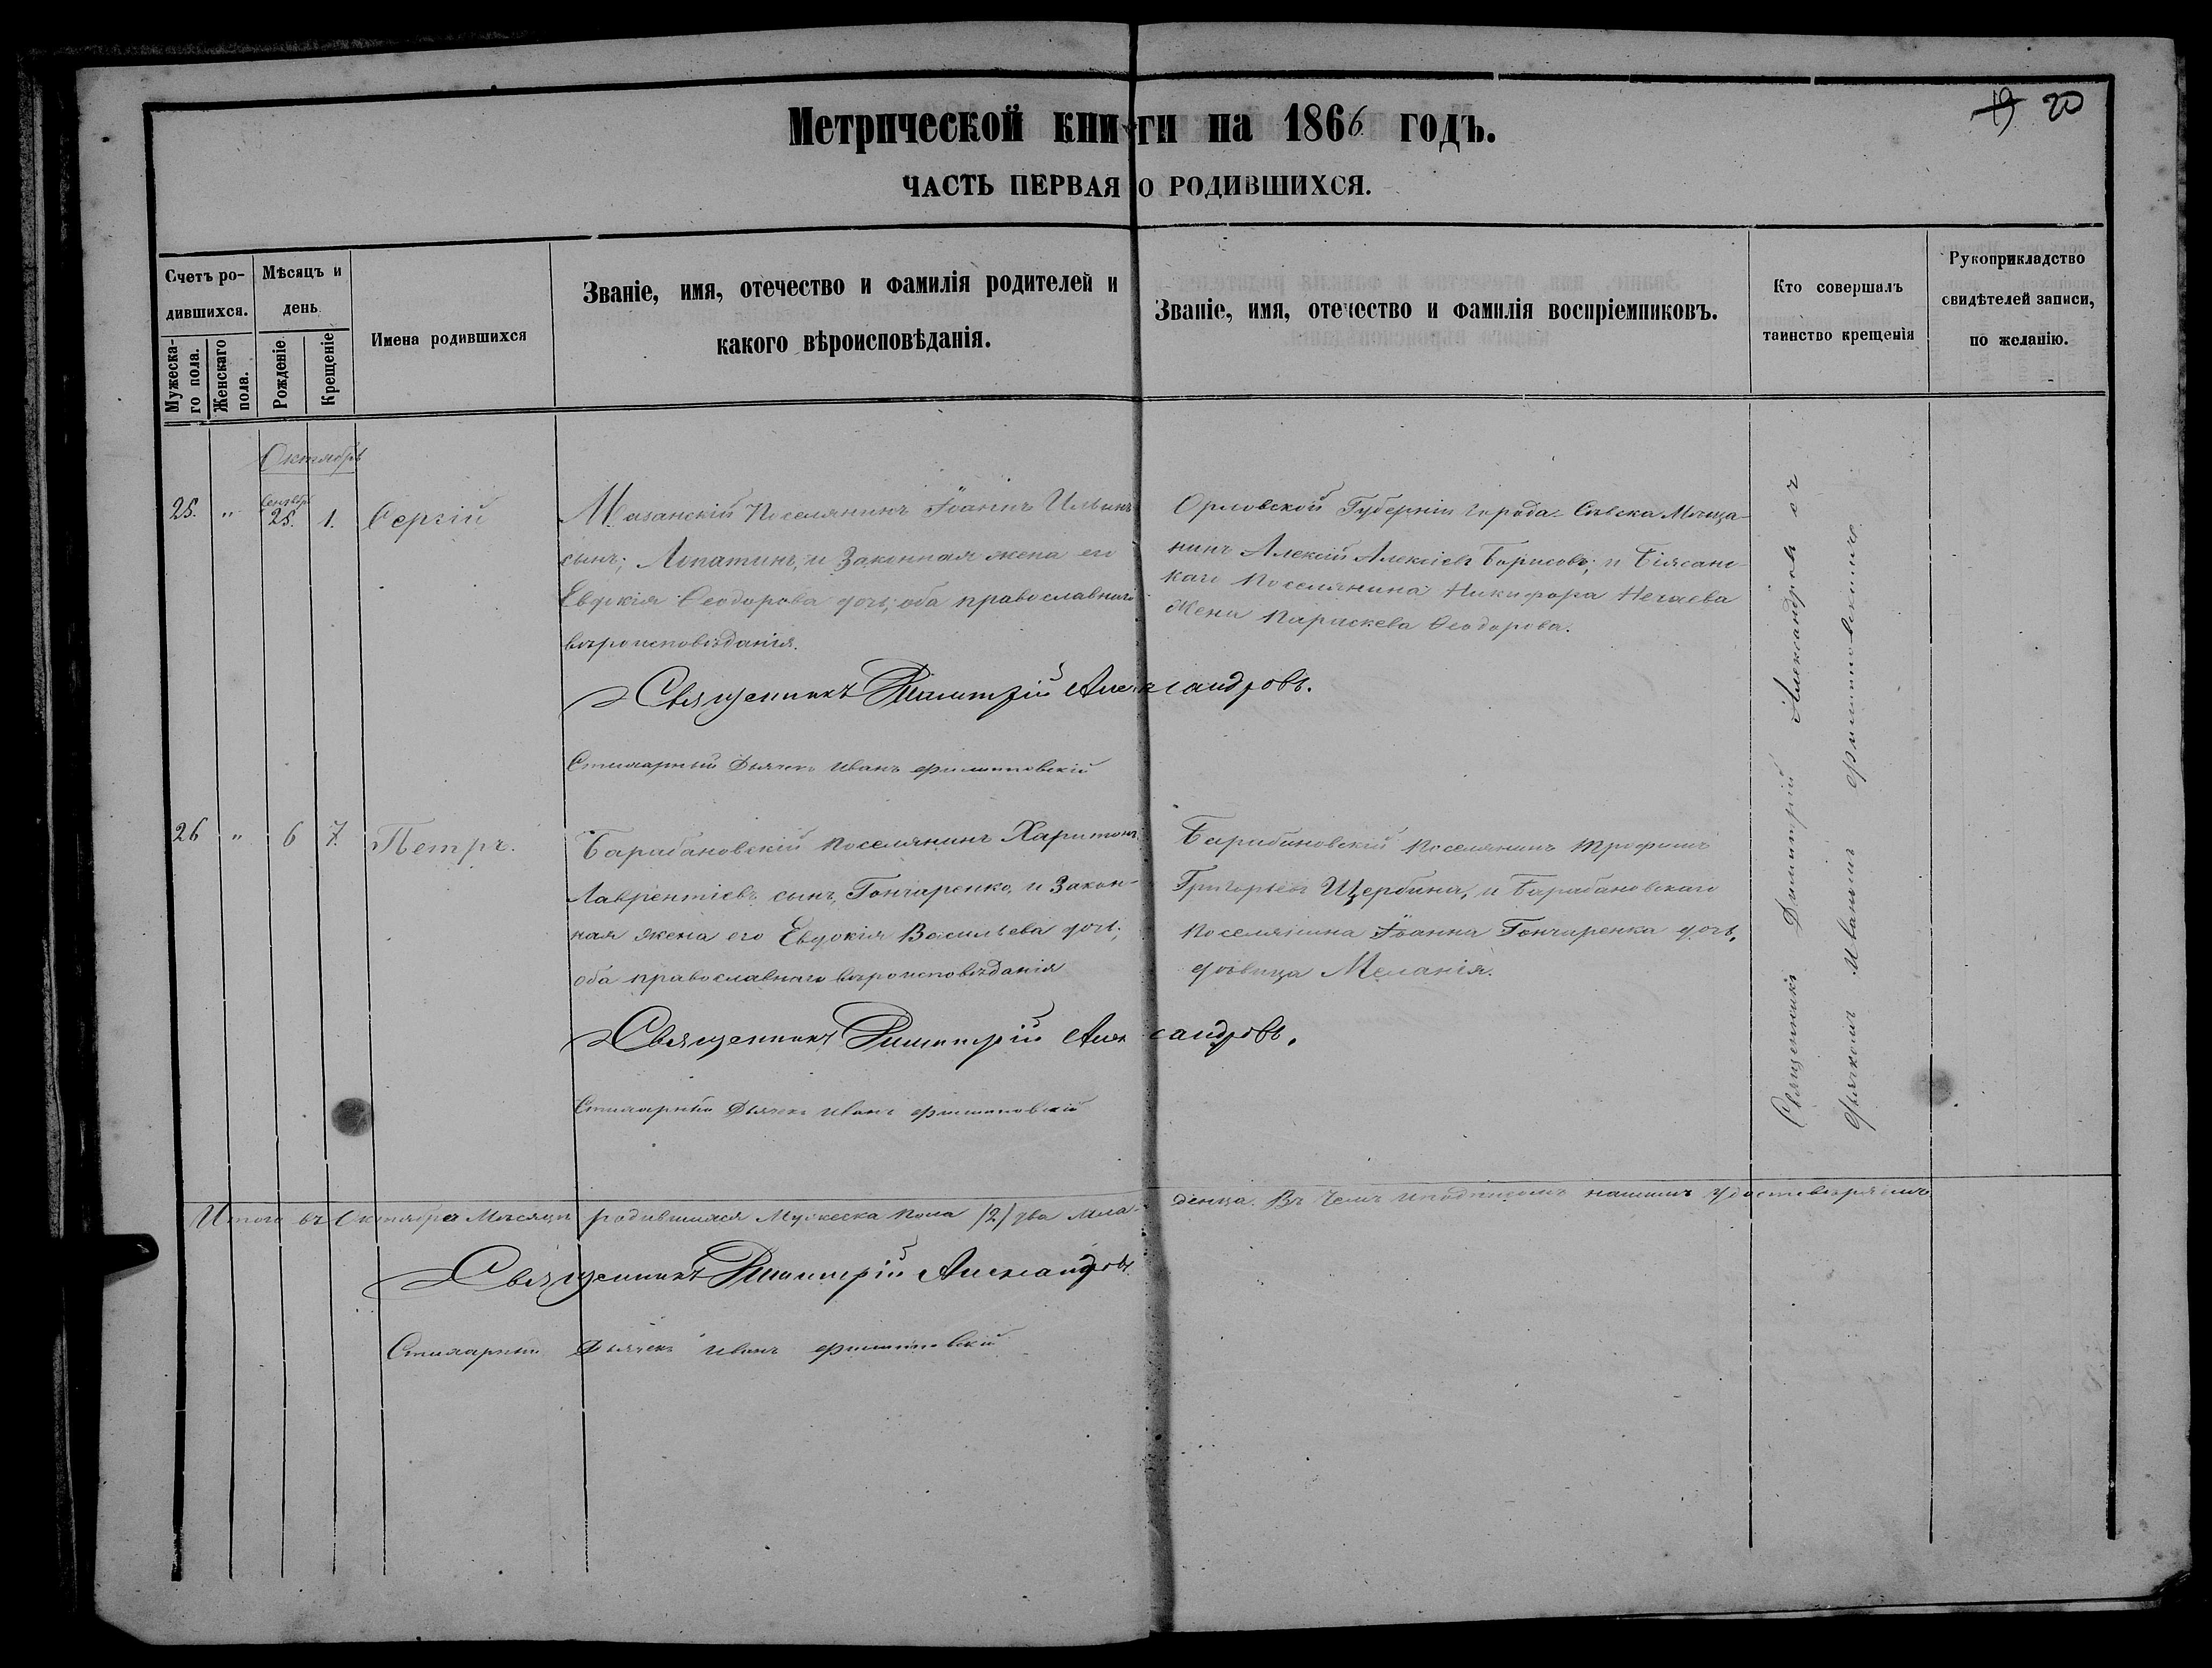 19 20
Метрической книги на 1866 годъ.
ЧАСТЬ ПЕРВАЯ О РОДИВШИХСЯ.
Счетъ ро-
дившихся.
Мужеска-
го пола.
Женскаго
пола.
Мѣсяцъ и
день.
Рожденіе.
Крещеніе.
Имена родившихся
Званіе, имя, отечество и фамилія родителей и
какого вѣроисповѣданія.
Званіе, имя, отечество и фамилія воспріемниковъ.
Кто совершалъ
таинство крещенія
Рукоприкладство
свидѣтелей записи,
по желанію.
Октябрь
25. " Сентябрь 25. 1. Сергій
Мазанскій Поселянинъ Іоаннъ Ильинъ
сынъ, Лопатинъ, и Законная жена его
Евдокія Ѳеодорова дочь; оба православнаго
вѣроисповѣданія.
Орловской Губерніи города Сѣвска Мѣща-
нинъ Алексій Алексіевъ Борисовъ; и
Поселянина Никифора Нечаева
Жена Параскева Ѳеодорова.
Священникъ Димитрій Александровъ.
Стихарный Дьячекъ Иванъ Филипповскій
26 " 6 7. Петръ.
Барабановскій Поселянинъ Харитонъ
Лаврентіевъ сынъ, Гончаренко, и Закон-
ная жена его Евдокія Васильева дочь;
оба православнаго вѣроисповѣданія
Барабановскій Поселянинъ Трофимъ
Григорьевъ Щербина, и Барабановскаго
Поселянина Іоанна Гончаренка дочь,
дѣвица Меланія.
Священникъ Димитрій Александровъ.
Стихарный Дьячекъ Иванъ Филипповскій
Священникъ Димитрій Александровъ съ
дьячкомъ Иваномъ Филипповскимъ
Итого въ Октябрѣ Мѣсяцѣ родившихся Мужеска пола /2/ два мла-
денца. Въ чемъ и подписомъ нашимъ удостовѣряемъ
Священникъ Димитрій Александровъ
Стихарный Дьячекъ Иванъ Филипповскій